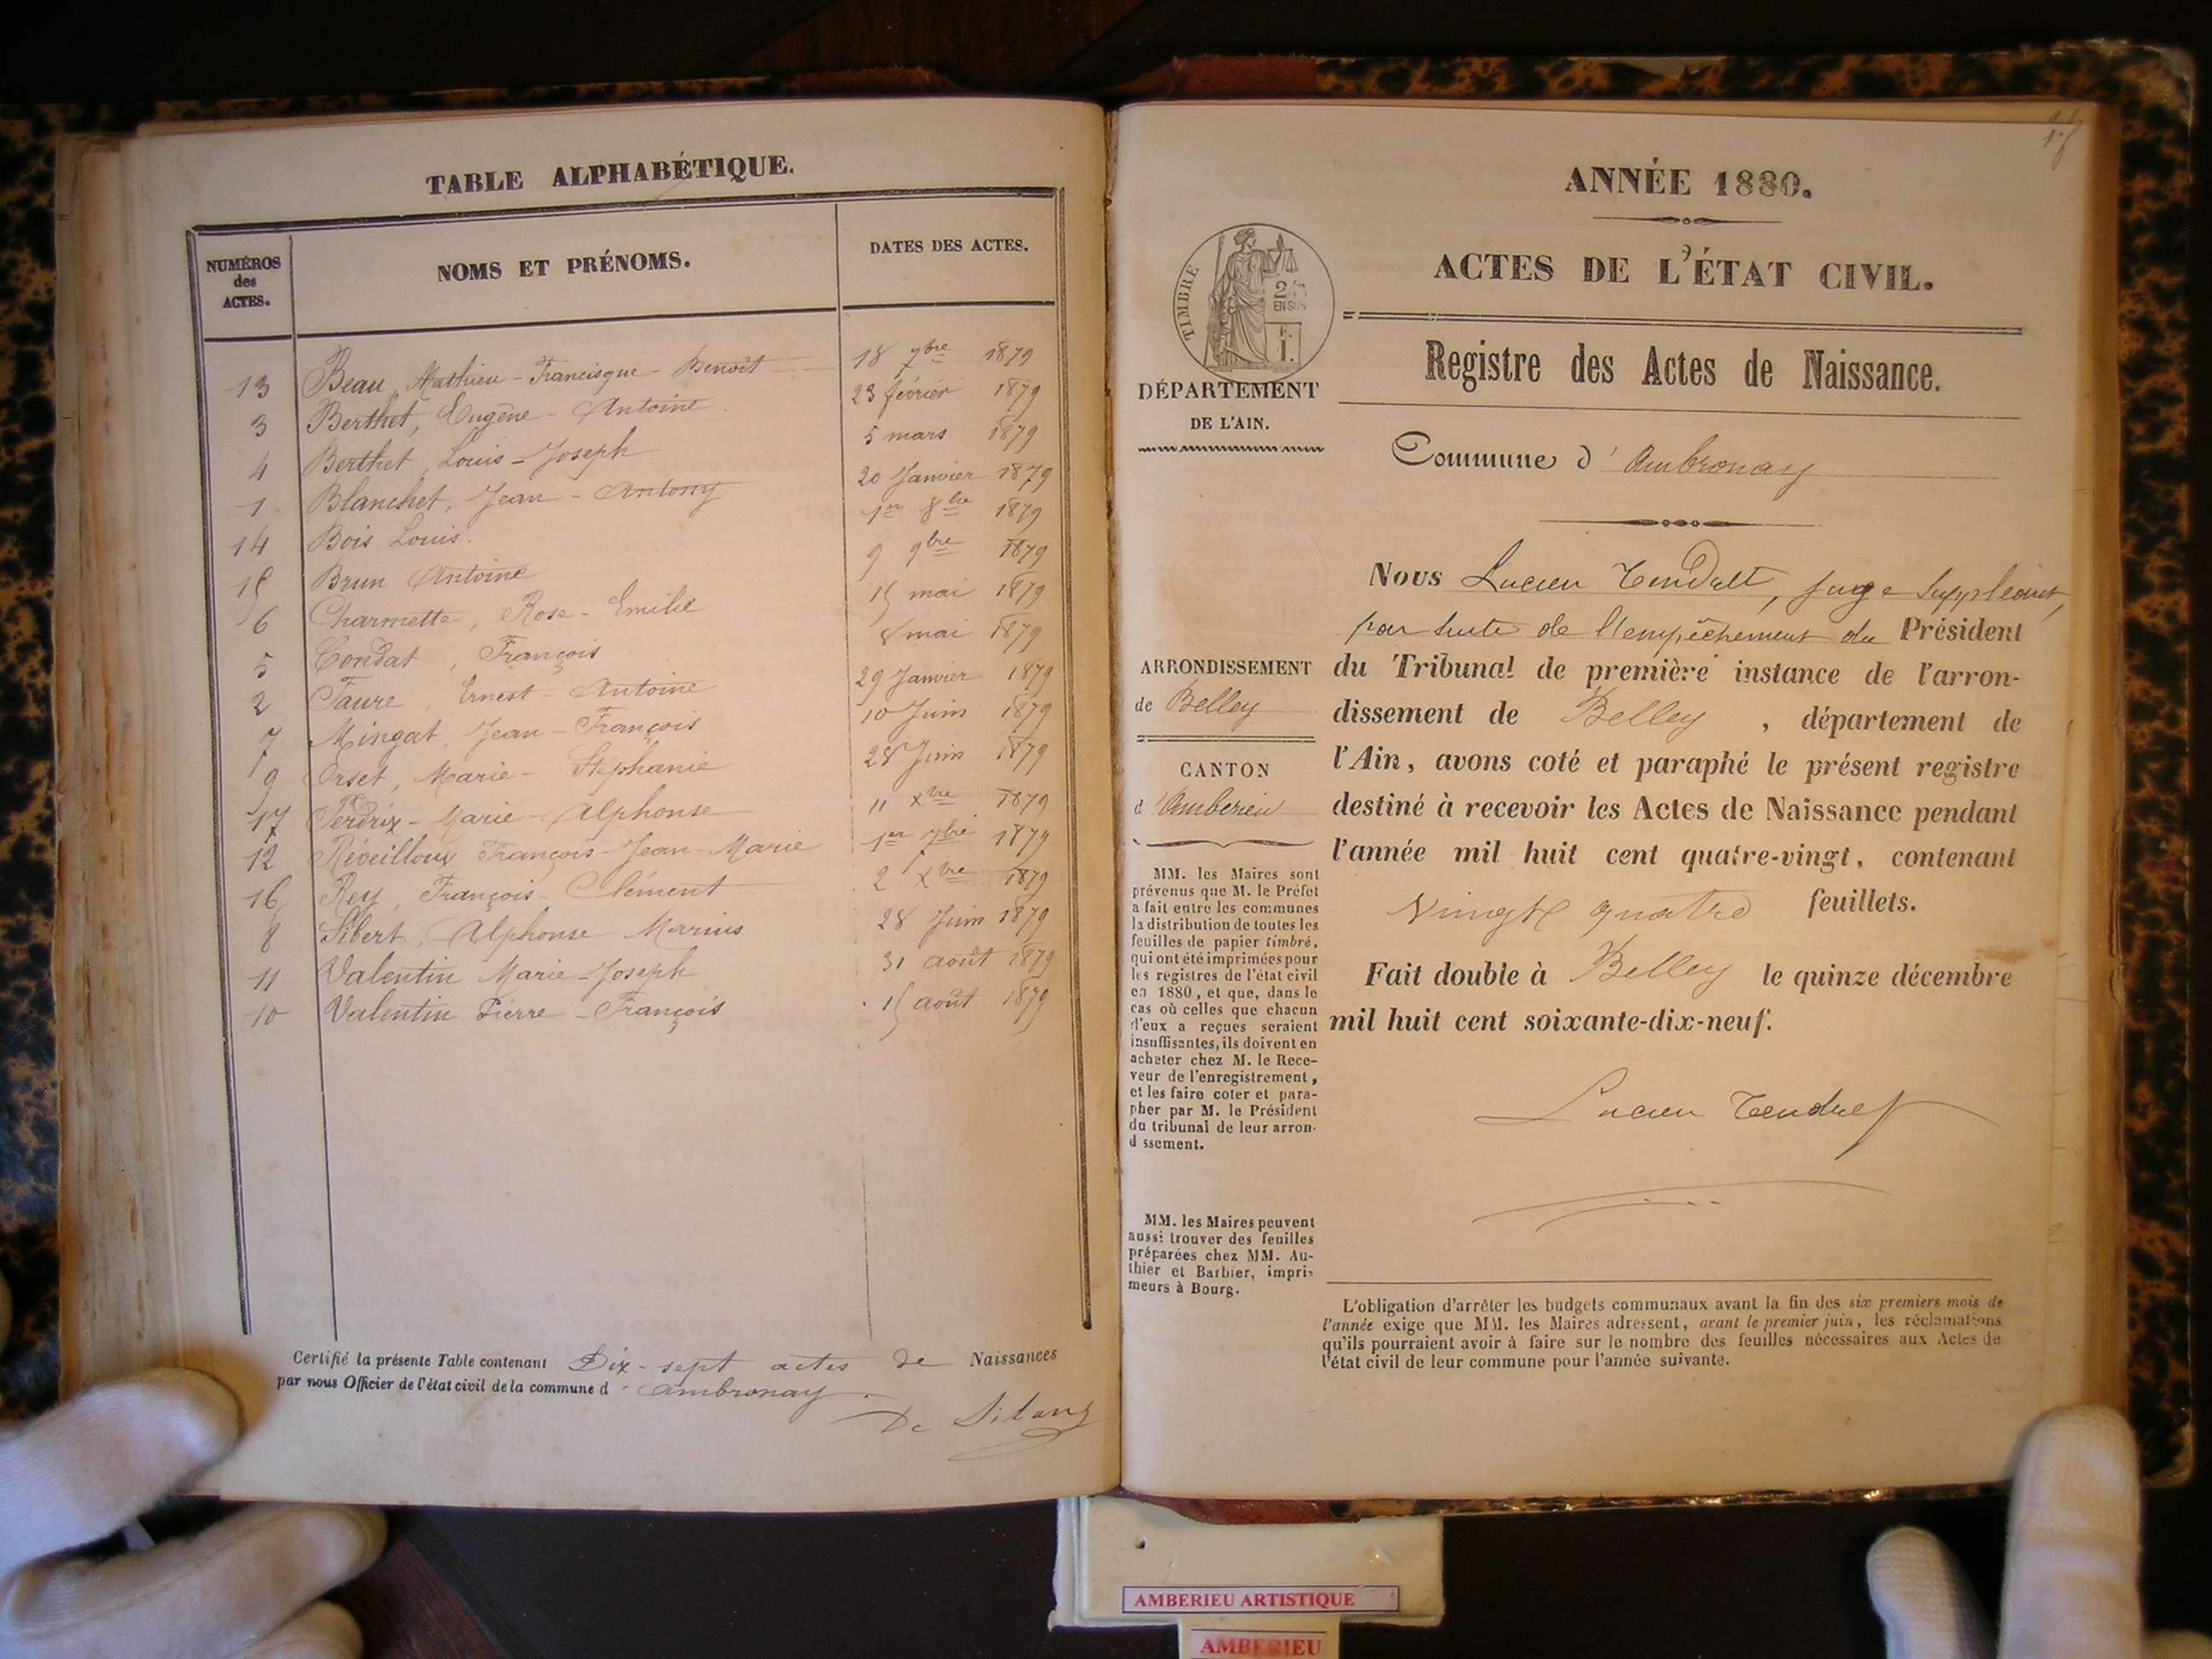 TABLE ALPHABÉTIQUE.
NUMÉROS des ACTES. NOMS ET PRÉNOMS. DATES DES ACTES.
13 Beau, Mathieu - Francisque - Benoît 18 7bre 1879
3 Berthet, Eugène - Antoine 23 février 1879
4 Berthet, Louis - Joseph 5 mars 1879
1 Blanchet, Jean - Antony 20 Janvier 1879
14 Bois Louis. 1er 8bre 1879
15 Brun Antoine 9 9bre 1879
6 Charmette, Rose - Emilie 15 mai 1879
5 Condat, François 8 mai 1879
2 Faure, Ernest - Antoine 29 Janvier 1879
7 Mingat, Jean - François 10 Juin 1879
9 Orset, Marie - Stéphanie 28 Juin 1879
17 Perdrix - Marie - Alphonse 11 xbre 1879
12 Réveilloux François - Jean - Marie 1er 7bre 1879
16 Rey, François - Clément 2 xbre 1879
8 Sibert, Alphonse Marius 28 Juin 1879
11 Valentin Marie - Joseph 31 août 1879
10 Valentin Pierre - François 15 août 1879
Certifié la présente Table contenant Dix - sept actes de Naissances
par nous Officier de l'état civil de la commune d' ambronay.
De
ANNÉE 1880.
ACTES DE L'ÉTAT CIVIL.
TIMBRE
EN SUS
Registre des Actes de Naissance.
DÉPARTEMENT
DE L'AIN.
Commune d' Ambronay
Nous Lucien Tendret, juge suppléant,
par suite de l'empêchement du Président
du Tribunal de première instance de l'arron-
dissement de Belley, département de
l'Ain, avons coté et paraphé le présent registre
destiné à recevoir les Actes de Naissance pendant
l'année mil huit cent quatre-vingt, contenant
Vingt quatre feuillets.
Fait double à Belley le quinze décembre
mil huit cent soixante-dix-neuf.
Lucien Tendret
ARRONDISSEMENT
de Belley
CANTON
d'Amberieu
MM. les Maires sont
prévenus que M. le Préfet
a fait entre les communes
la distribution de toutes les
feuilles de papier timbré,
qui ont été imprimées pour
les registres de l'état civil
en 1880, et que, dans le
cas où celles que chacun
d'eux a reçues seraient
insuffisantes, ils doivent en
acheter chez M. le Rece-
veur de l'enregistrement,
et les faire coter et para-
pher par M. le Président
du tribunal de leur arron-
d ssement.
MM. les Maires peuvent
aussi trouver des feuilles
préparées chez MM. Au-
thier et Barbier, impri-
meurs à Bourg.
L'obligation d'arrêter les budgets communaux avant la fin des six premiers mois de
l'année exige que MM. les Maires adressent, avant le premier juin, les réclamations
qu'ils pourraient avoir à faire sur le nombre des feuilles nécessaires aux Actes de
l'état civil de leur commune pour l'année suivante.
AMBERIEU ARTISTIQUE
AMBERIEU